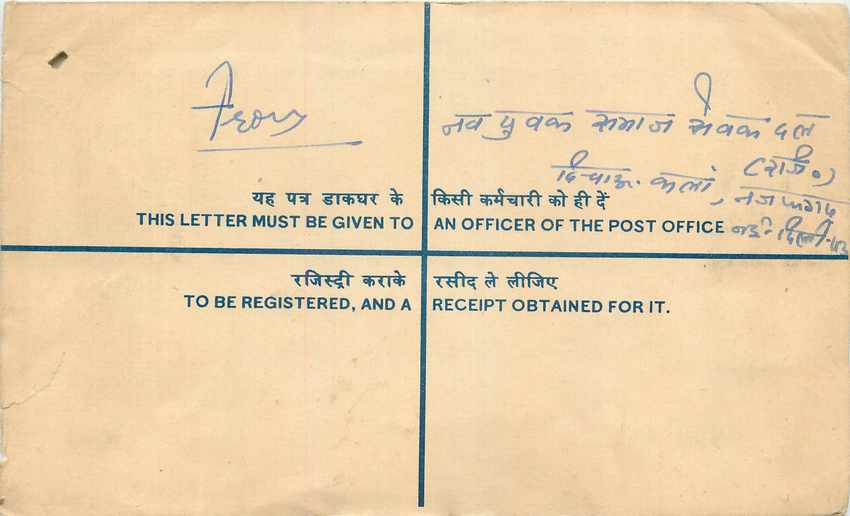 From
नव युवक समाज सेवक दल
(रजि०)
दिचाऊ कलां, नजफगढ़
नई दिल्ली-43
यह पत्र डाकघर के किसी कर्मचारी को ही दें
THIS LETTER MUST BE GIVEN TO AN OFFICER OF THE POST OFFICE
रजिस्ट्री कराके रसीद ले लीजिए
TO BE REGISTERED, AND A RECEIPT OBTAINED FOR IT.